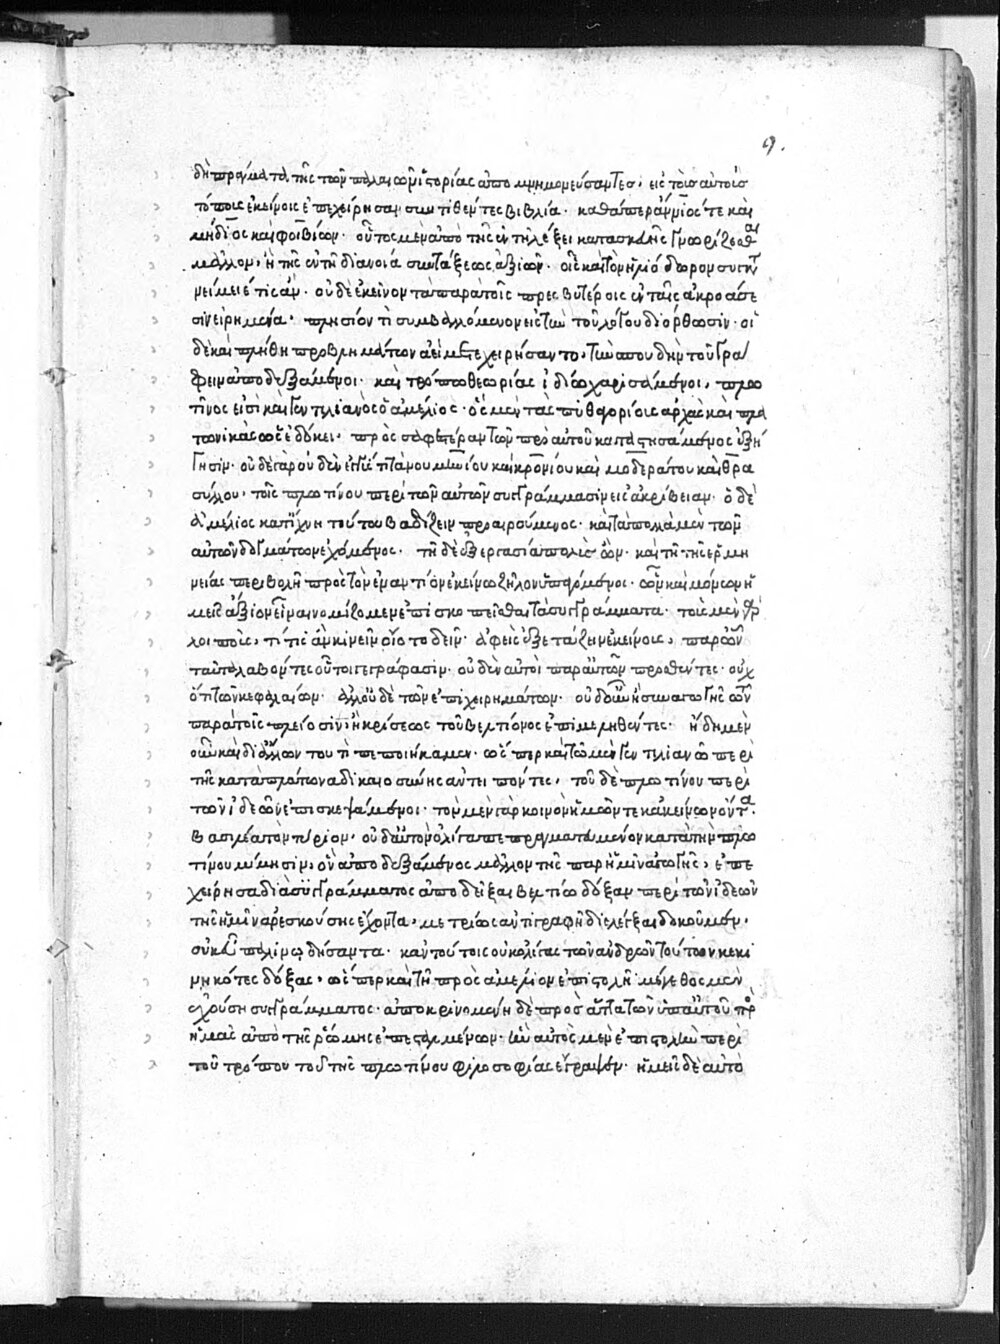 9.
δὴ πράγματα τῆς τῶν παλαιῶν ἱστορίας ἀπομνημονεύσαντες, εἰς τοὺς αὐτοὺς
τόπους ἐκείνοις ἐπεχείρησαν συντιθέντες βιβλία. καθάπερ ἄννιός τε καὶ
μήδιος καὶ φοιβίων. οὗτος μὲν ἀπὸ τῆς ἐν τῇ λέξει κατασκευῆς γνωρίζεσθαι
μᾶλλον, ἢ τῆς ἐν τῇ διανοία συντάξεως ἀξιῶν. οἷς καὶ τὸν ἡλιόδωρον συγκα
νείμειέ τις ἄν. οὐδὲ ἐκεῖνον τὰ παρὰ τοῖς πρεσβυτέροις ἐν ταῖς ἀκροάσε
σιν εἰρημένα, πλησίον τὶ συμβαλλόμενον εἰς τὴν τοῦ λόγου διόρθωσιν. οἱ
δὲ καὶ πλήθη προβλημάτων ἃ εἰ μετεχειρήσαντο, τὴν σπουδὴν τοῦ γρά
φειν ἀποδεξάμενοι. καὶ τρόπω θεωρίας ἰδίω χρησάμενοι, πλω
τῖνος εἰσὶ καὶ γεντιλιανὸς ὁ ἀμέλιος. ὃς μὲν τὰς πυθαγορίους ἀρχὰς καὶ πλα
τωνικὰς ὡς ἐδόκει, πρὸς σαφεστέραν τῶν πρὸ αὐτοῦ καταστησάμενος ἐξή
γησιν. οὐδὲ γὰρ οὐδὲν ἐγγύς τι τὰ νουμηνίου καὶ κρονίου καὶ μοδεράτου καὶ θρα
σύλλου, τοῖς πλωτίνου περὶ τῶν αὐτῶν συγγράμμασιν εἰς ἀκρίβειαν. ὁ δὲ
ἀμέλιος κατ' ἴχνη τούτου βαδίζειν προαιρούμενος. καὶ τὰ πολλὰ μὲν τῶν
αὐτῶν δογμάτων ἐχόμενος. τῆ δὲ ἐξεργασία πολὺς ὤν. καὶ τῆ τῆς ἑρμη
νείας περιβολῆ πρὸς τὸν ἐναντίον ἐκείνω ζῆλον ὑπαγόμενος. ὧν καὶ μόνων ἡ
μεῖς ἄξιον εἶναι νομίζομεν ἐπισκοπεῖσθαι τὰ συγγράμματα. τοὺς μὲν γὰρ
λοιποὺς, τί τις ἂν κινεῖν οἴοιτο δεῖν. ἀφεὶς ἐξετάζειν ἐκείνους, παρ' ὧν
ταῦτα λαβόντες οὗτοι γεγράφασιν. οὐδὲν αὐτοὶ παρ' αὑτῶν προσθέντες. οὐχ
ὅτι τῶν κεφαλαίων. ἀλλ' οὐδὲ τῶν ἐπιχειρημάτων. οὐδ' οὖν ἢ συναγωγῆς τῶν
παρὰ τοῖς πλείοσιν, ἢ κρίσεως τοῦ βελτίονος ἐπιμεληθέντες. ἤδη μὲν
οὖν καὶ δι' ἄλλων τουτὶ πεποιήκαμεν. ὥσπερ καὶ τῶ μὲν γεντιλιανῶ περὶ
τῆς κατὰ πλάτωνα δικαιοσύνης ἀντειπόντες, τοῦ δὲ πλωτίνου περὶ
τῶν ἰδεῶν ἐπισκεψάμενοι. τὸν μὲν γὰρ κοινὸν ἡμῶν τε κἀκείνων ὄντα.
βασιλέα τὸν τύριον, οὐδ' αὐτὸν ὀλίγα πεπραγματευμένον κατὰ τὴν πλω
τίνου μίμησιν, ὃν ἀποδεξάμενος μᾶλλον τῆς παρ' ἡμῖν ἀγωγῆς, ἐπε
χείρησα διὰ συγγράμματος ἀποδεῖξαι βελτίω δόξαν περὶ τῶν ἰδεῶν
τῆς ἡμῖν ἀρεσκούσης ἔχοντα, μετρίως ἀντιγραφῆ διελέγξαι δοκοῦμεν,
οὐκ εὖ παλινωδήσαντα. κἂν τούτοις οὐκ ὀλίγας τῶν ἀνδρῶν τούτων κεκι
νηκότες δόξας, ὥσπερ καὶ τῆ πρὸς ἀμέλιον ἐπιστολῆ μέγεθος μὲν
ἐχούση συγγράμματος. ἀποκρινομένη δὲ πρὸς ἄττα τῶν ὑπ' αὐτοῦ πρὸς
ἡμᾶς ἀπὸ τῆς ῥώμης ἐπεσταλμένων. ἣν αὐτὸς μὲν ἐπιστολὴν περὶ
τοῦ τρόπου τοῦ τῆς πλωτίνου φιλοσοφίας ἔγραψεν. ἡμεῖς δὲ αὐτὸ